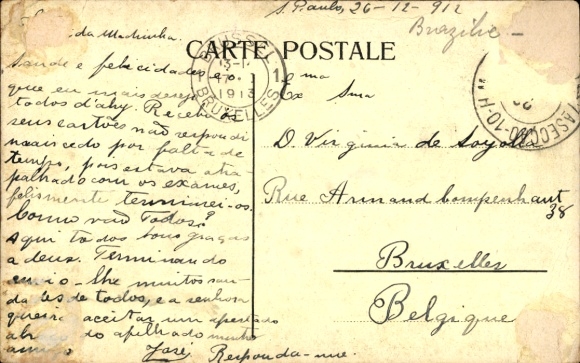 S. Paulo, 26-12-912
Brazilie
da Madrinha.
CARTE POSTALE
Saude e felicidades e o
que eu mais desejo
todos d'ahy. Recebi
seus cartões não respondi
mais cedo por falta de
tempo, pois estava atra-
palhado com os exames,
felismente terminei-os.
Como vão Todos?
Aqui todos bons graças
a deus. Terminando
envio-lhe muitos sau-
dades de todos, e a senhora
queira aceitar um apertado
do afilhado muito
amigo José Responda-me.
BRUXELLES
13-1
1913
BRUSSEL
1
Exma
Sma
D. Virginia de
Rue Armand Campenhaut
38
Bruxelles
Belgique